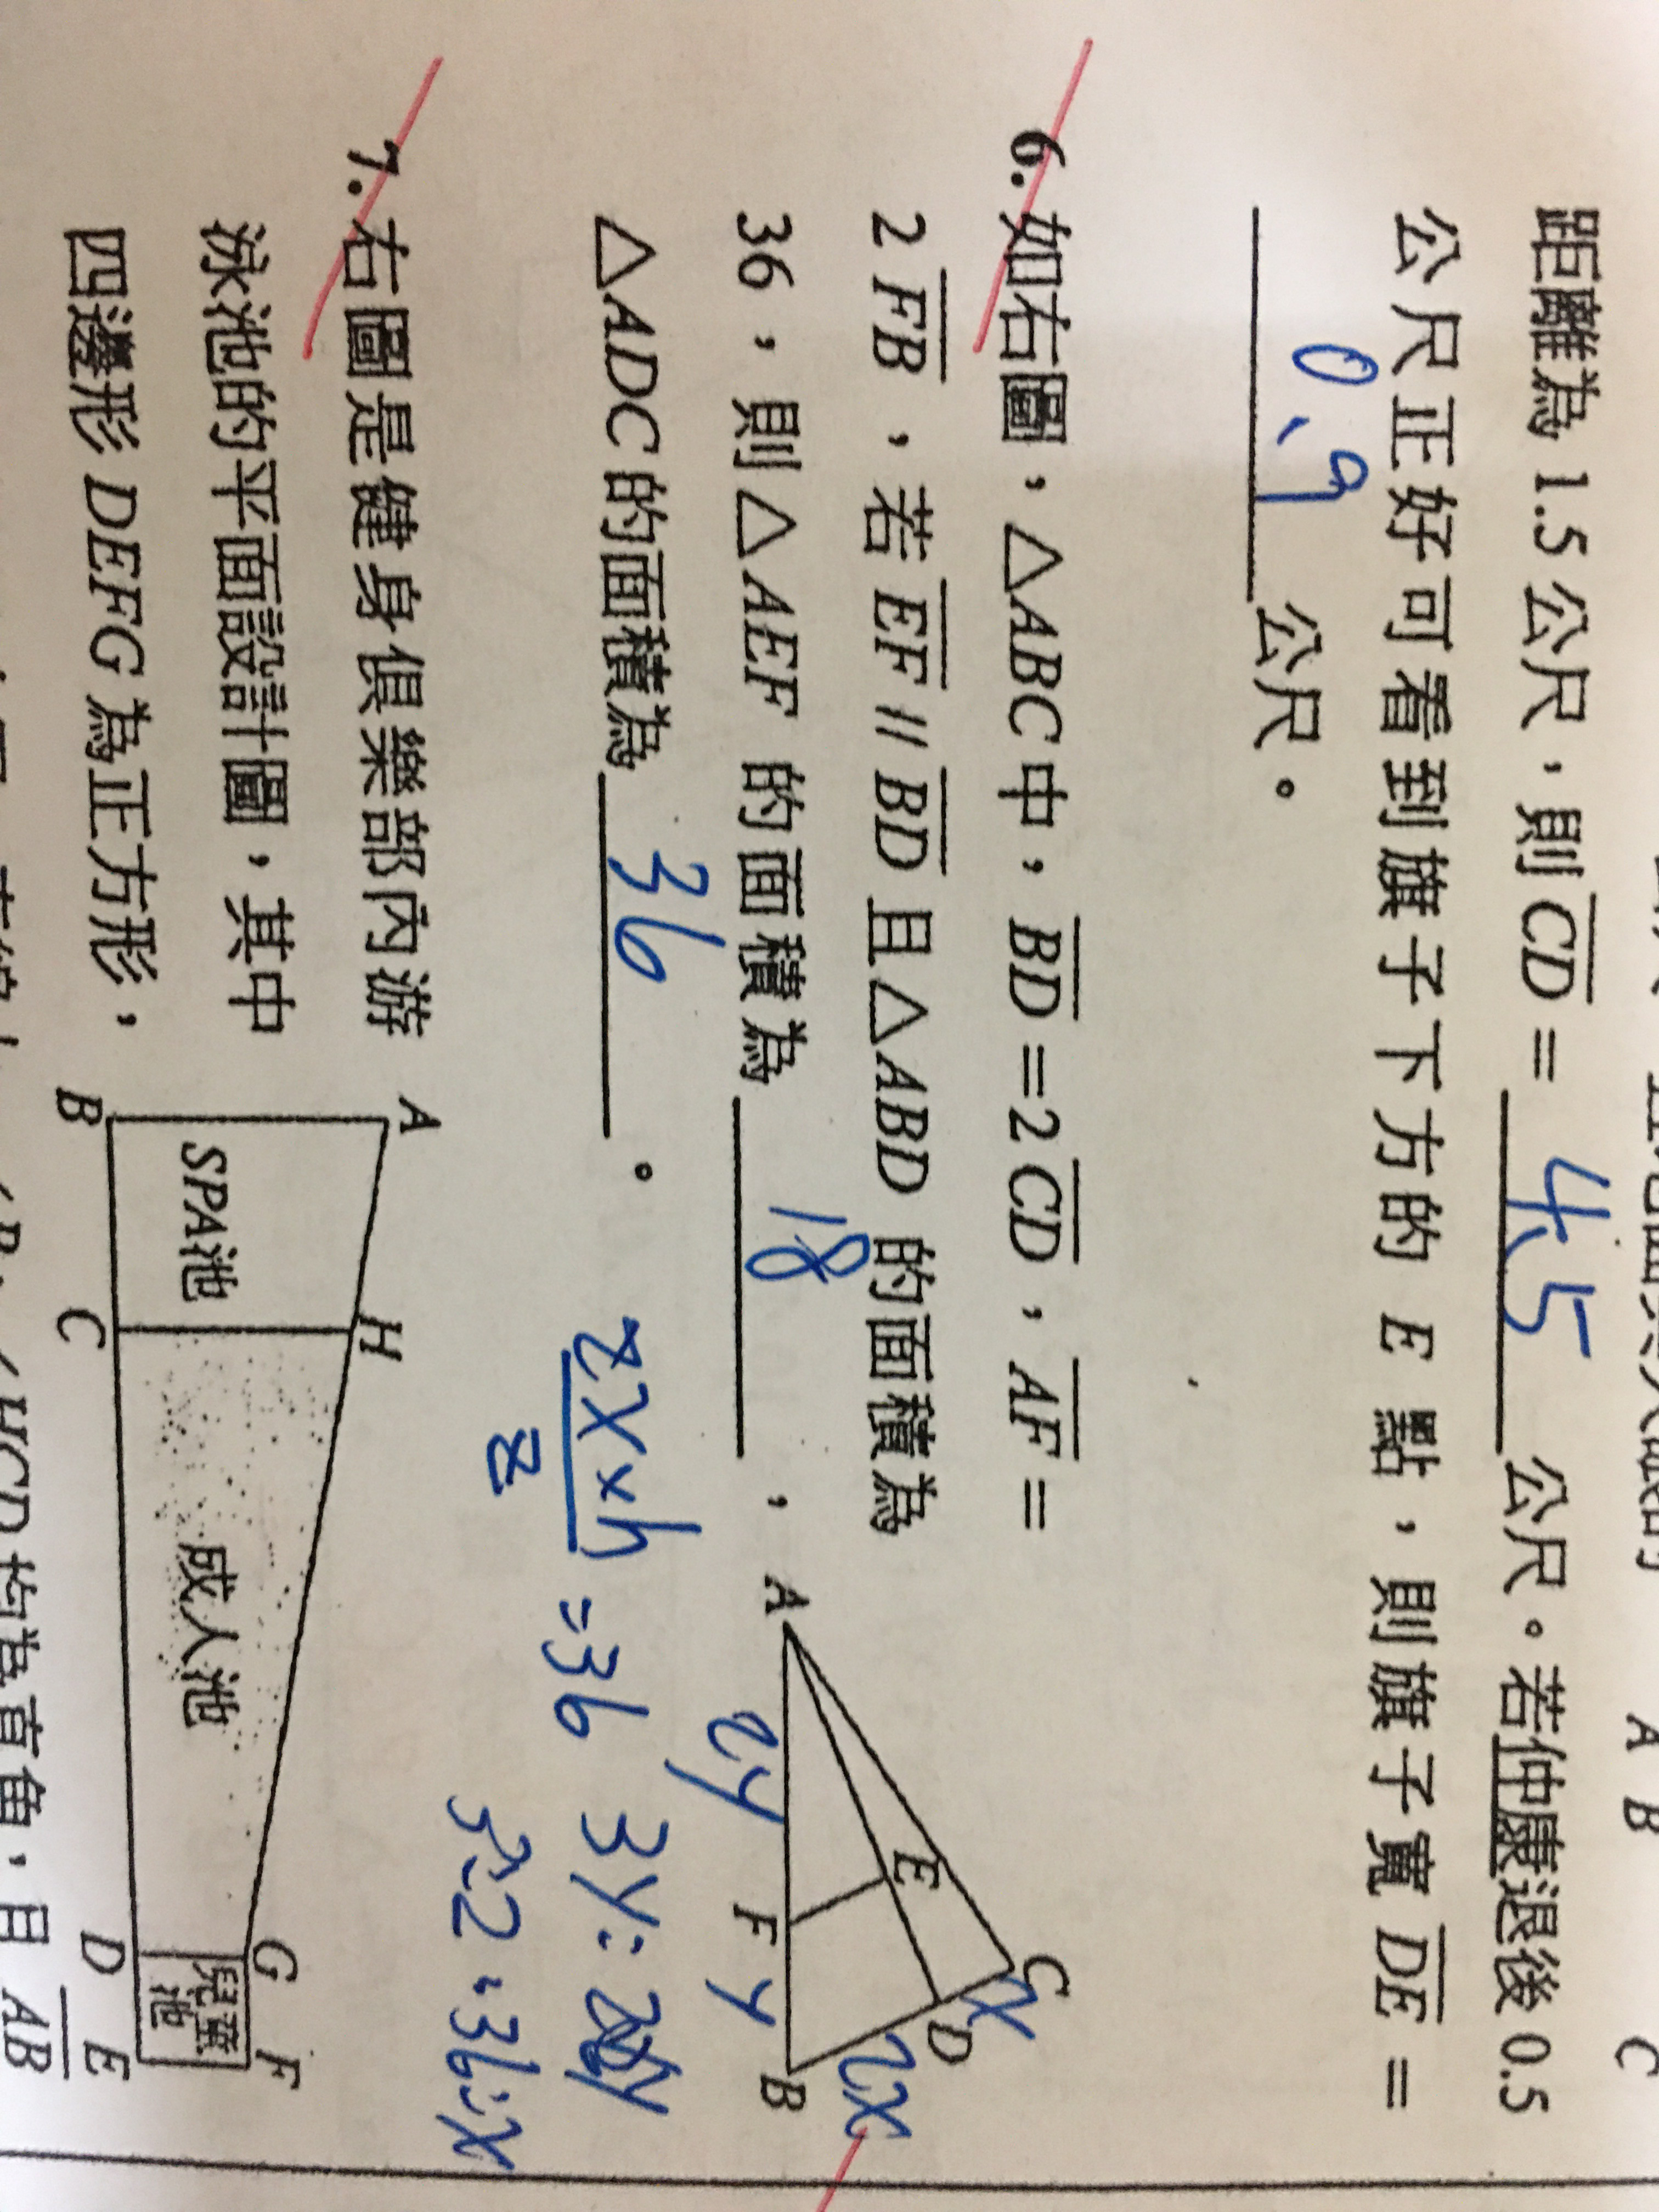 A B C
距離為 1.5 公尺，則 CD = 4.5 公尺。若仲康退後 0.5
公尺正好可看到旗子下方的 E 點，則旗子寬 DE =
0.9 公尺。
6. 如右圖，△ABC 中，BD = 2 CD，AF =
2 FB，若 EF // BD 且 △ABD 的面積為
36，則 △AEF 的面積為 18，
△ADC 的面積為 36。
A E C D F B
x
2x
2y y
2x×h
2
=36 3y:2y
3:2=36:x
7. 右圖是健身俱樂部內游
泳池的平面設計圖，其中
四邊形 DEFG 為正方形，
A H G F
SPA池 成人池 兒童池
B C D E
HCD 均為直角，且 AB